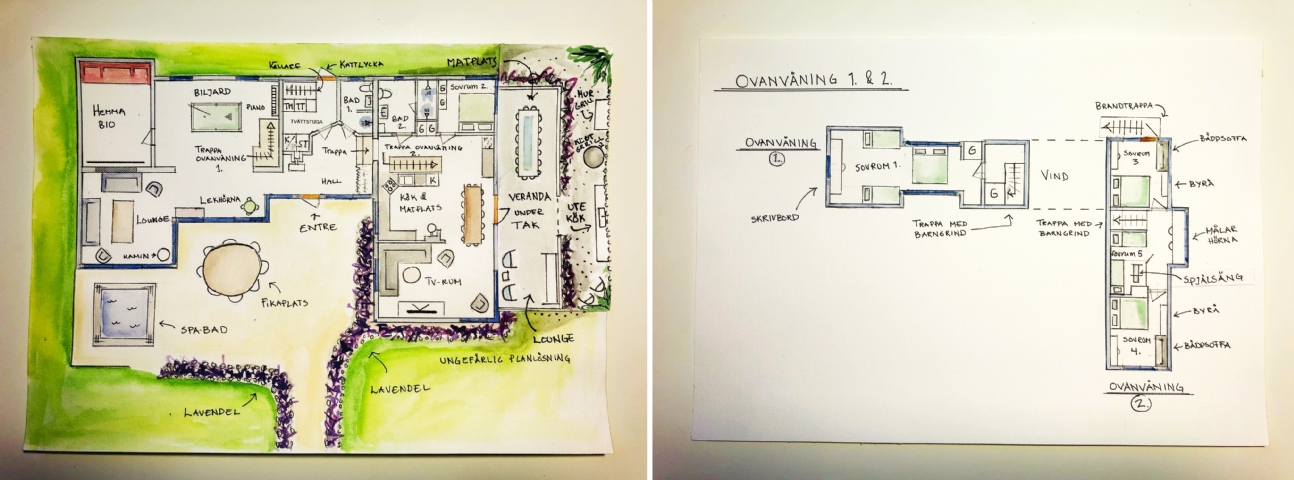 KÄLLARE
KATTLYCKA
MATPLATS
HEMMA
BIO
BILJARD
PIANO
TM TT
TVÄTTSTUGA
K/F
ST
BAD
1.
BAD
2.
G
G
G G
SOVRUM 2.
MUR
GRILL
TRAPPA
OVANVÅNING
1.
TRAPPA
TRAPPA OVANVÅNING
2.
HALL
K
KÖK &
MATPLATS
VERANDA
UNDER
TAK
UTE
KÖK
LEKHÖRNA
LOUNGE
KAMIN
ENTRE
FIKAPLATS
TV-RUM
SPA-BAD
LOUNGE
UNGEFÄRLIG PLANLÖSNING
LAVENDEL
LAVENDEL
OVANVÅNING 1. & 2.
OVANVÅNING
1.
SOVRUM 1.
G
G
SKRIVBORD
TRAPPA MED
BARNGRIND
VIND
TRAPPA MED
BARNGRIND
BRANDTRAPPA
SOVRUM
3
BÄDDSOFFA
BYRÅ
MÅLAR
HÖRNA
SOVRUM 5
SPJÄLSÄNG
BYRÅ
SOVRUM
4.
BÄDDSOFFA
OVANVÅNING
2.